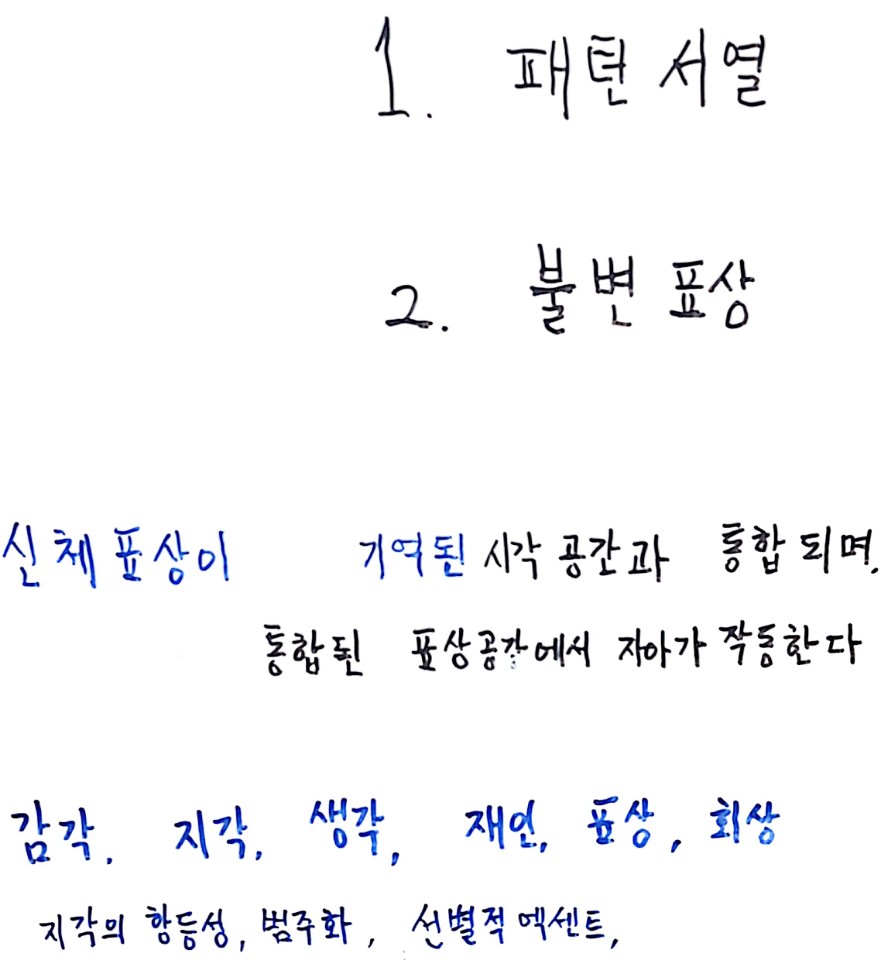 1. 패턴 서열
2. 불변 표상
신체 표상이 기억된 시각 공간과 통합 되며,
통합된 표상공간에서 자아가 작동한다
감각, 지각, 생각, 재인, 표상, 회상
지각의 항등성, 범주화, 선별적 엑센트,